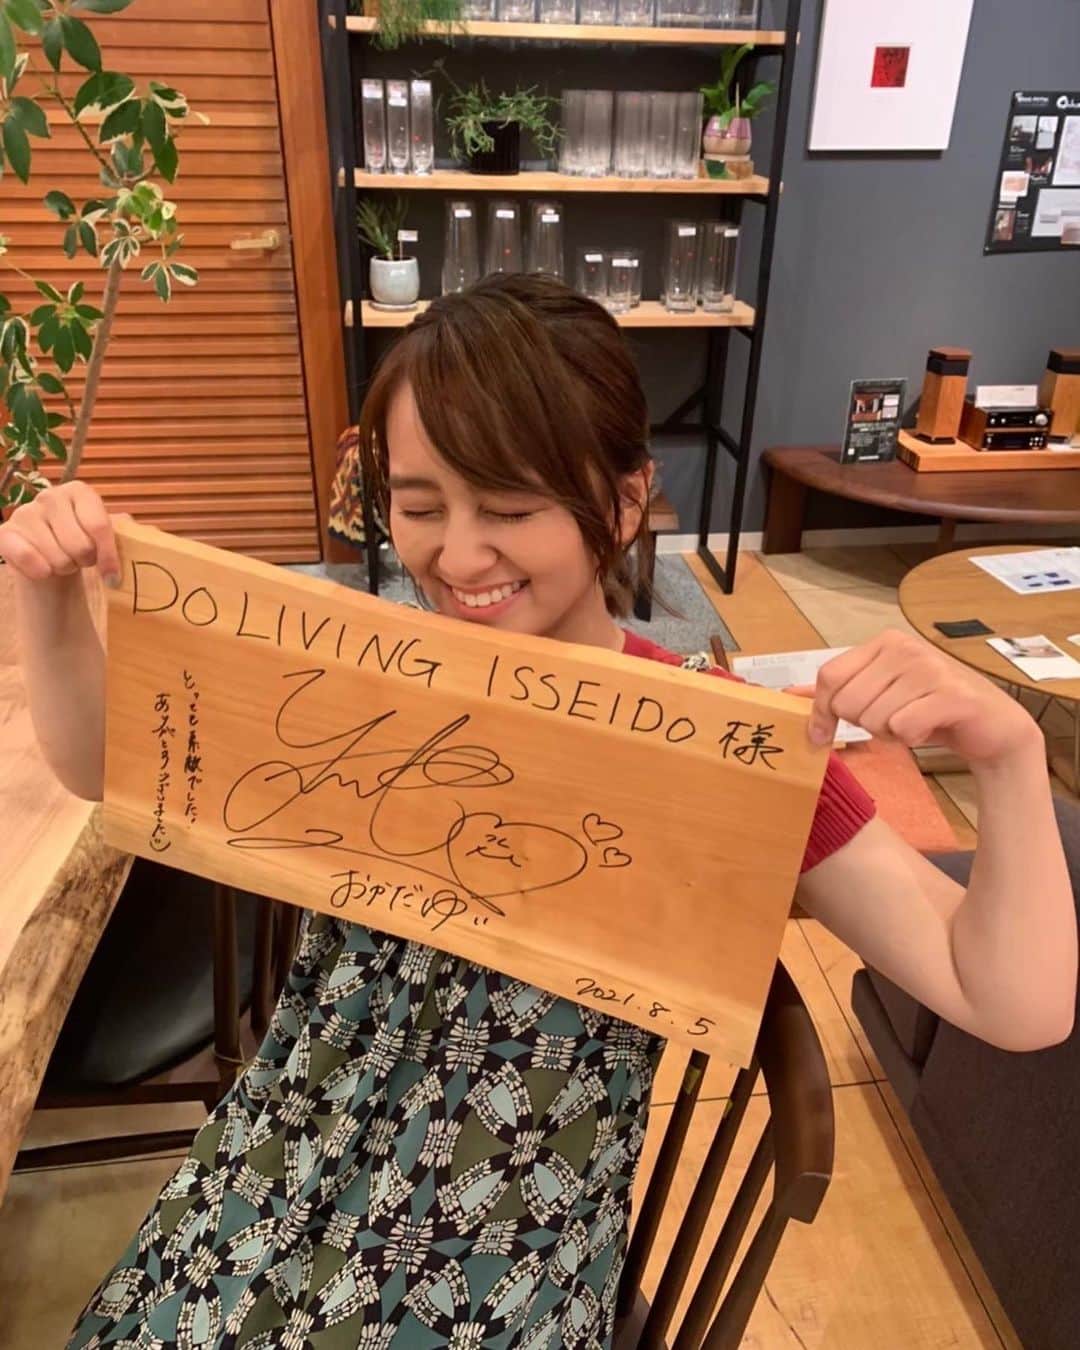 DO LIVING ISSEIDO 様
とっても素敵でした!
ありがとうございました
おかだゆい
2021.8.5